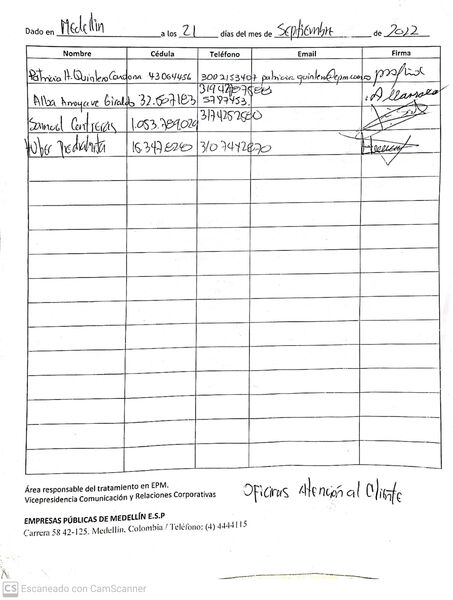 Dado en Medellin a los 21 días del mes de Septiembre de 2022
Nombre Cédula Teléfono Email Firma
Patricia H. Quintero Cardona 43064456 3002153407 patricia.quintero@epm.com.co
Alba Arroyave Giraldo 32.507.183
5787453
Samuel Contreras 1.053.789.029 3174257580
Piedrahita 3107442870
Área responsable del tratamiento en EPM.
Vicepresidencia Comunicación y Relaciones Corporativas
Oficinas Atención al Cliente
EMPRESAS PÚBLICAS DE MEDELLÍN E.S.P
Carrera 58 42-125. Medellín, Colombia / Teléfono: (4) 4444115
CS Escaneado con CamScanner